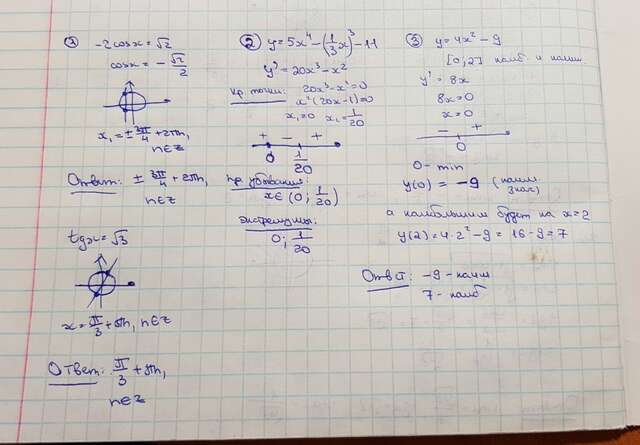 ①
-2cosx = √2
cosx = -√2/2
x₁ = ± 3π/4 + 2πn,
n∈z
Ответ: ± 3π/4 + 2πn,
n∈z
tgx = √3
x = π/3 + πn, n∈z
Ответ: π/3 + πn,
n∈z
②
y = 5x⁴ - (1/3x)³ - 11
y' = 20x³ - x²
кр. точки: 20x³ - x² = 0
x²(20x-1) = 0
x₁ = 0 x₂ = 1/20
+ - +
0 1/20
пр. убывания:
x∈(0; 1/20)
экстремумы:
0; 1/20
③
y = 4x² - 9
[0; 2] наиб и наим
y' = 8x
8x = 0
x = 0
- +
0
0 - min
y(0) = -9 (наим. знач.)
а наибольшим будет на x = 2
y(2) = 4·2² - 9 = 16 - 9 = 7
Ответ: -9 - наим
7 - наиб